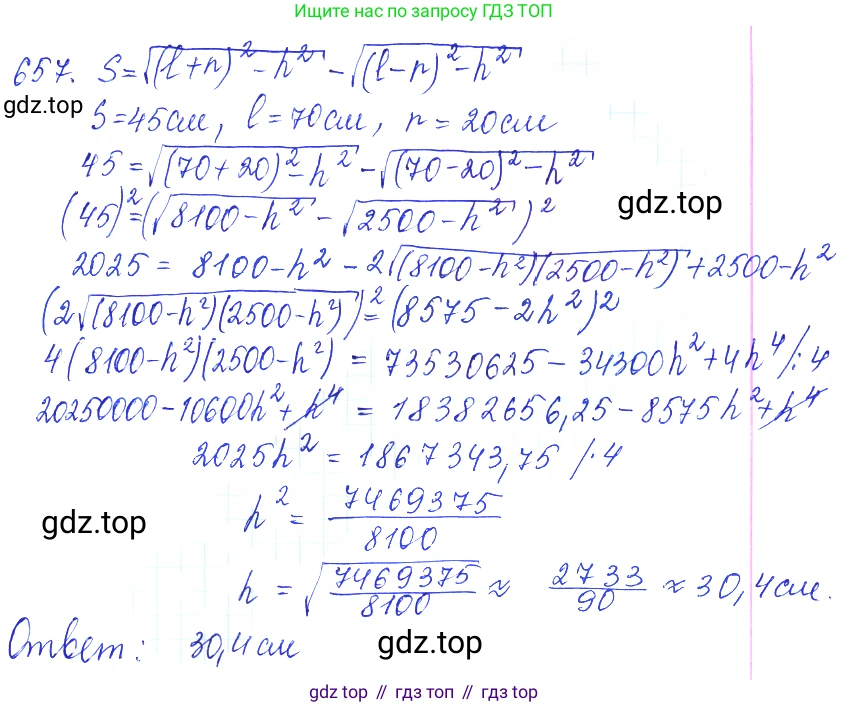 Ищите нас по запросу ГДЗ ТОП
657. S = √((l+r)² - h²) - √((l-r)² - h²)
gdz.top
S = 45 см, l = 70 см, r = 20 см
45 = √((70+20)² - h²) - √((70-20)² - h²)
(45)² = (√(8100 - h²) - √(2500 - h²))²
gdz.top
2025 = 8100 - h² - 2√((8100 - h²)(2500 - h²)) + 2500 - h²
(2√((8100 - h²)(2500 - h²)))² = (8575 - 2h²)²
4(8100 - h²)(2500 - h²) = 73530625 - 34300h² + 4h⁴ /:4
20250000 - 10600h² + h⁴ = 18382656,25 - 8575h² + h⁴
2025h² = 1867343,75 /·4
h² = 7469375/8100
gdz.top
h = √(7469375/8100) ≈ 2733/90 ≈ 30,4 см.
Ответ: 30,4 см
gdz.top
gdz top // гдз топ // gdz top